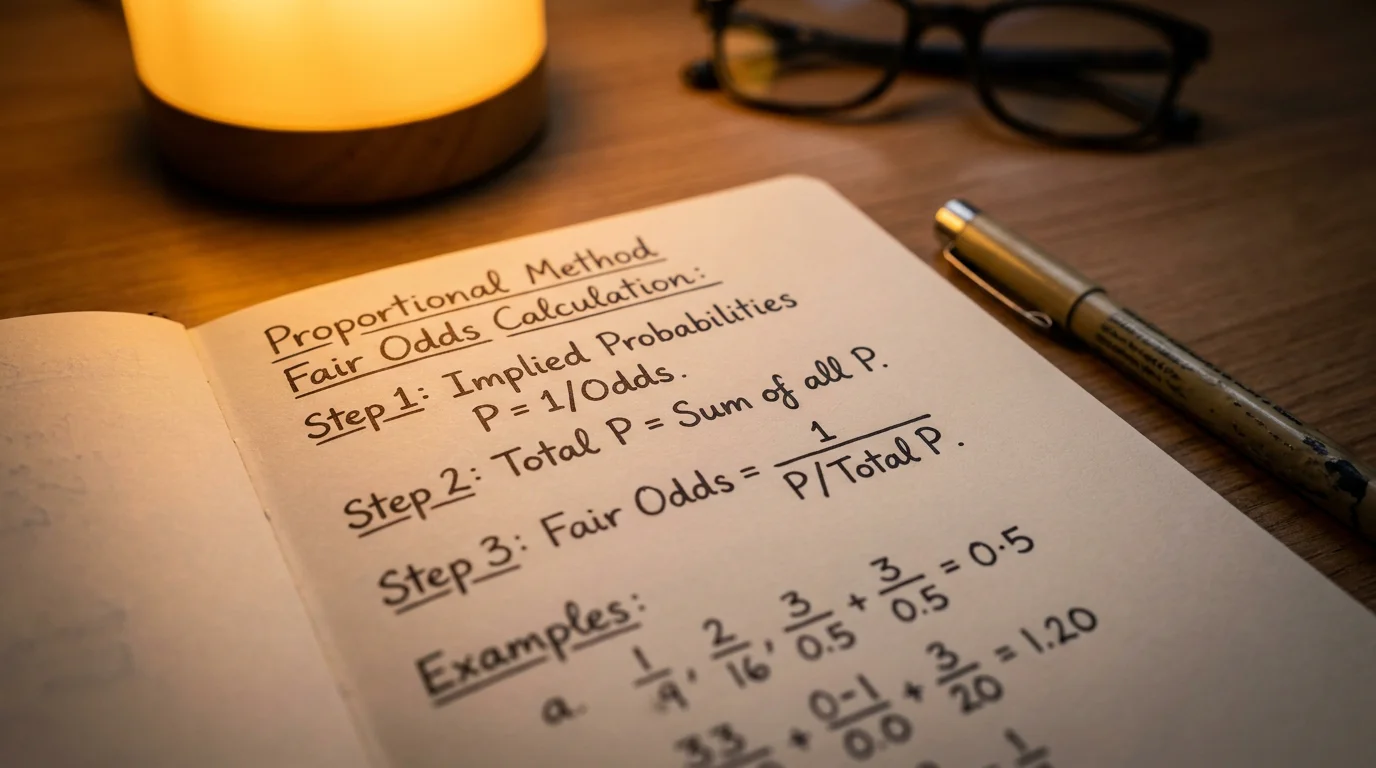 Proportional Method
Fair Odds Calculation:
Step 1: Implied Probabilities
P = 1/Odds.
Step 2: Total P = Sum of all P.
Step 3: Fair Odds = 1 / P/Total P.
Examples:
a. 1/9, 2/16, 3/0.5 + 3/0.5 = 0.5
33 + 0-1/0.0 + 3/20 = 1.20